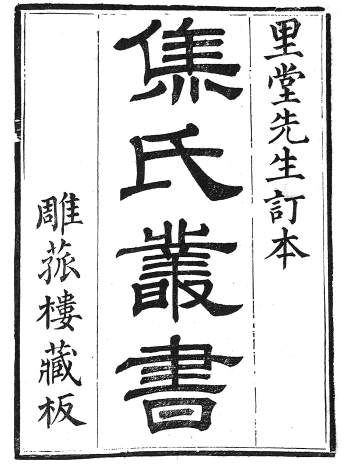 里堂先生訂本
焦氏叢書
雕菰樓藏板